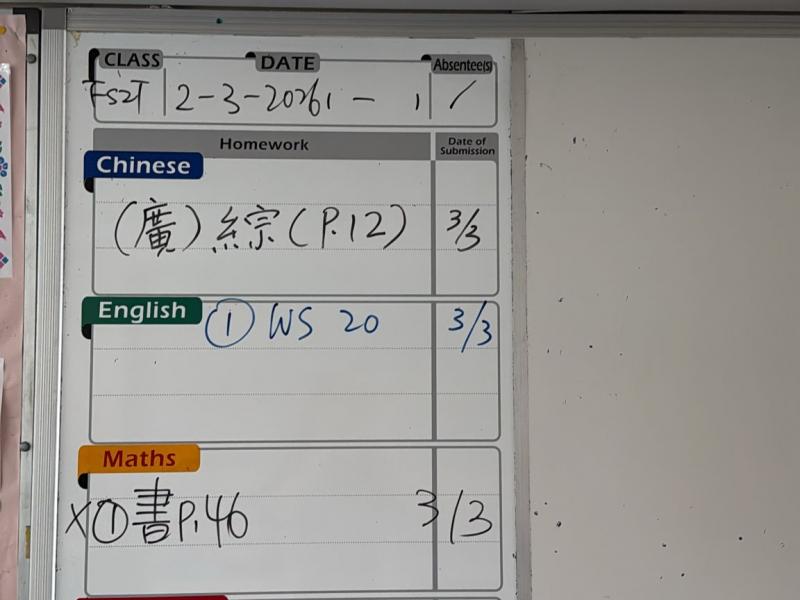 CLASS DATE Absentee(s)
2-3-2026 /
Homework Date of Submission
Chinese
(廣) 綜 (P.12) 3/3
English
① WS 20 3/3
Maths
X ① 書 P.46 3/3